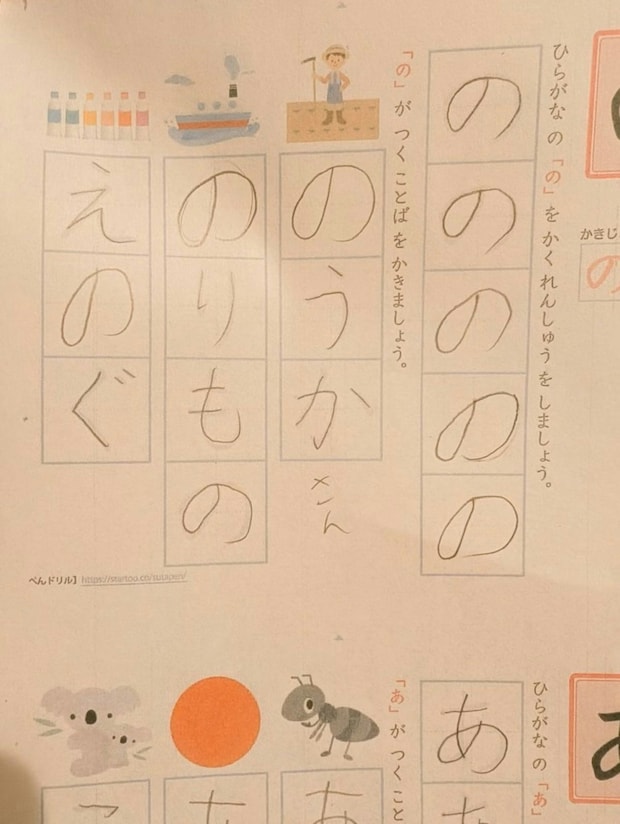 かきじ
の
ひらがな の 「の」 を かくれんしゅう を しましょう。
の
の
の
の
の
「の」 が つく ことば を かきましょう。
のうか
さん
のりもの
えのぐ
ぺんドリル】 https://startoo.co/suupen/
ひらがな の 「あ」
あ
「あ」 が つく こと